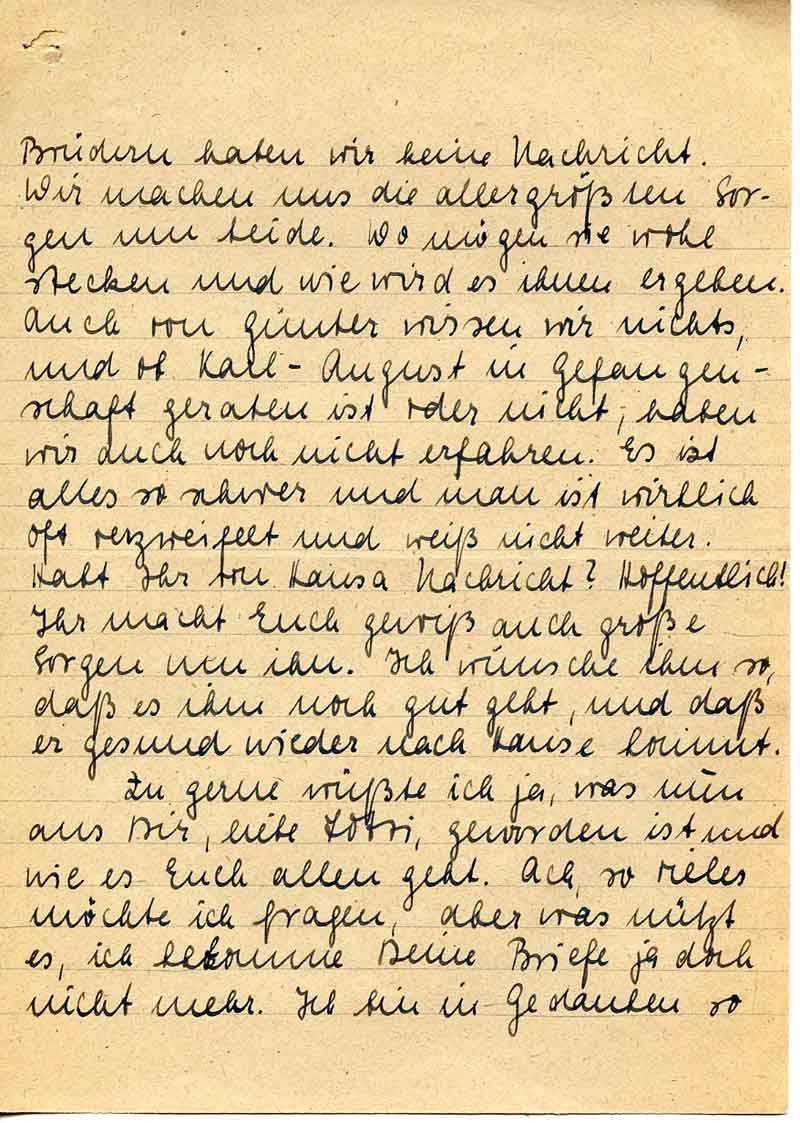 Brüdern haben wir keine Nachricht.
Wir machen uns die allergrößten Sor-
gen um beide. Wo mögen sie wohl
stecken und wie wird es ihnen ergehen.
Auch von Günter wissen wir nichts,
und ob Karl-August in Gefangen-
schaft geraten ist oder nicht, haben
wir auch noch nicht erfahren. Es ist
alles so schwer und man ist wirklich
oft verzweifelt und weiß nicht weiter.
Habt Ihr von Hansa Nachricht? Hoffentlich!
Ihr macht Euch gewiß auch große
Sorgen um ihn. Ich wünsche ihm so,
daß es ihm noch gut geht, und daß
er gesund wieder nach Hause kommt.
Zu gerne wüßte ich ja, was nun
aus Dir, liebe Lotti, geworden ist und
wie es Euch allen geht. Ach, so vieles
möchte ich fragen, aber was nützt
es, ich bekomme Deine Briefe ja doch
nicht mehr. Ich bin in Gedanken so